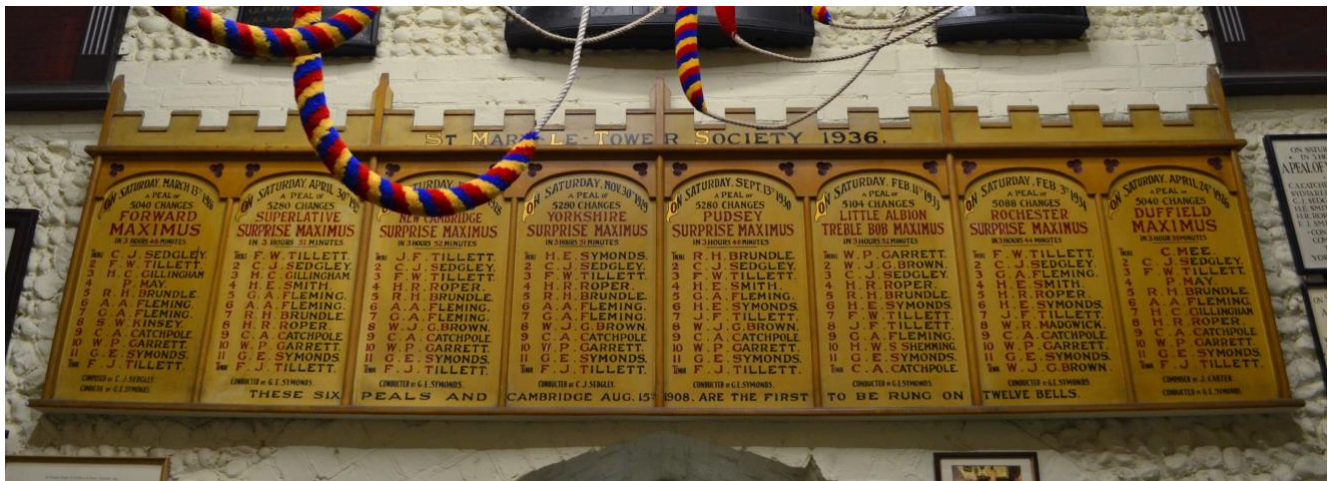 ST MARY-LE-TOWER SOCIETY 1936.
ON SATURDAY, MARCH 13TH 1926
A PEAL OF
5040 CHANGES
FORWARD
MAXIMUS
IN 3 HOURS 46 MINUTES
TREBLE C. J. SEDGLEY.
2 F. W. TILLETT.
3 H. C. GILLINGHAM
4 P. MAY.
5 R. H. BRUNDLE.
6 A. A. FLEMING.
7 G. A. FLEMING.
8 S. W. KINSEY.
9 C. A. CATCHPOLE.
10 W. P. GARRETT.
11 G. E. SYMONDS.
TENOR F. J. TILLETT.
COMPOSED BY C. J. SEDGLEY.
CONDUCTED BY G. E. SYMONDS.
ON SATURDAY, APRIL 30TH
A PEAL OF
5280 CHANGES
SUPERLATIVE
SURPRISE MAXIMUS
IN 3 HOURS 51 MINUTES
TREBLE F. W. TILLETT.
2 C. J. SEDGLEY.
3 H. C. GILLINGHAM
4 H. E. SMITH.
5 G. A. FLEMING.
6 A. A. FLEMING.
7 R. H. BRUNDLE.
8 H. R. ROPER.
9 C. A. CATCHPOLE.
10 W. P. GARRETT.
11 G. E. SYMONDS.
TENOR F. J. TILLETT.
CONDUCTED BY G. E. SYMONDS.
1928
NEW CAMBRIDGE
SURPRISE MAXIMUS
IN 3 HOURS 52 MINUTES
TREBLE J. F. TILLETT.
2 C. J. SEDGLEY.
3 F. W. TILLETT.
4 H. R. ROPER.
5 R. H. BRUNDLE.
6 A. A. FLEMING.
7 G. A. FLEMING.
8 W. J. G. BROWN.
9 C. A. CATCHPOLE.
10 W. P. GARRETT.
11 G. E. SYMONDS.
TENOR F. J. TILLETT.
CONDUCTED BY G. E. SYMONDS.
ON SATURDAY, NOV. 30TH 1929
A PEAL OF
5280 CHANGES
YORKSHIRE
SURPRISE MAXIMUS
IN 3 HOURS 51 MINUTES
TREBLE H. E. SYMONDS.
2 C. J. SEDGLEY.
3 F. W. TILLETT.
4 H. R. ROPER.
5 R. H. BRUNDLE.
6 A. A. FLEMING.
7 G. A. FLEMING.
8 W. J. G. BROWN.
9 C. A. CATCHPOLE.
10 W. P. GARRETT.
11 G. E. SYMONDS.
TENOR F. J. TILLETT.
CONDUCTED BY C. J. SEDGLEY.
ON SATURDAY, SEPT. 13TH 1930
A PEAL OF
5280 CHANGES
PUDSEY
SURPRISE MAXIMUS
IN 3 HOURS 48 MINUTES
TREBLE R. H. BRUNDLE.
2 C. J. SEDGLEY.
3 F. W. TILLETT.
4 H. E. SMITH.
5 G. A. FLEMING.
6 H. E. SYMONDS.
7 H. R. ROPER.
8 W. J. G. BROWN.
9 C. A. CATCHPOLE.
10 W. P. GARRETT.
11 G. E. SYMONDS.
TENOR F. J. TILLETT.
CONDUCTED BY G. E. SYMONDS.
ON SATURDAY, FEB. 11TH 1933
A PEAL OF
5104 CHANGES
LITTLE ALBION
TREBLE BOB MAXIMUS
IN 3 HOURS 52 MINUTES
TREBLE W. P. GARRETT.
2 W. J. G. BROWN.
3 C. J. SEDGLEY.
4 H. R. ROPER.
5 H. E. SMITH.
6 H. E. SYMONDS.
7 F. W. TILLETT.
8 J. F. TILLETT.
9 G. A. FLEMING.
10 H. W. S. SHEMMING.
11 G. E. SYMONDS.
TENOR C. A. CATCHPOLE.
CONDUCTED BY G. E. SYMONDS.
ON SATURDAY, FEB. 3RD 1934
A PEAL OF
5088 CHANGES
ROCHESTER
SURPRISE MAXIMUS
IN 3 HOURS 44 MINUTES
TREBLE F. W. TILLETT.
2 C. J. SEDGLEY.
3 G. A. FLEMING.
4 H. E. SMITH.
5 H. R. ROPER.
6 H. E. SYMONDS.
7 J. F. TILLETT.
8 W. R. MADGWICK.
9 C. A. CATCHPOLE.
10 W. P. GARRETT.
11 G. E. SYMONDS.
TENOR W. J. G. BROWN.
CONDUCTED BY G. E. SYMONDS.
ON SATURDAY, APRIL 24TH 1926
A PEAL OF
5040 CHANGES
DUFFIELD
MAXIMUS
IN 3 HOURS 59 MINUTES
TREBLE C. MEE.
2 C. J. SEDGLEY.
3 F. W. TILLETT.
4 P. MAY.
5 R. H. BRUNDLE.
6 A. A. FLEMING.
7 H. C. GILLINGHAM
8 H. R. ROPER.
9 C. A. CATCHPOLE.
10 W. P. GARRETT.
11 G. E. SYMONDS.
TENOR F. J. TILLETT.
COMPOSED BY J. CARTER.
CONDUCTED BY G. E. SYMONDS.
THESE SIX PEALS AND CAMBRIDGE AUG. 15TH 1908. ARE THE FIRST TO BE RUNG ON TWELVE BELLS.
ON SATUR
A PEAL OF